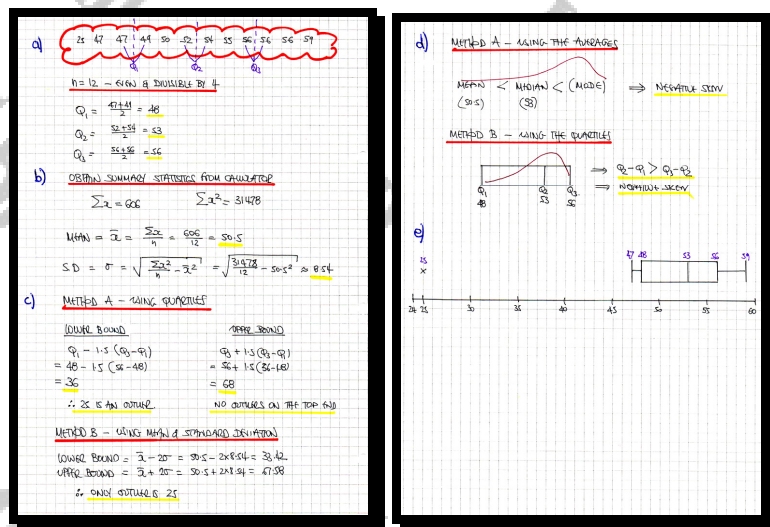 a)
25 47 47 49 50 52 54 55 56 56 56 59
Q₁ Q₂ Q₃
n=12 – EVEN & DIVISIBLE BY 4
Q₁ = 47+49/2 = 48
Q₂ = 52+54/2 = 53
Q₃ = 56+56/2 = 56
b) OBTAIN SUMMARY STATISTICS FROM CALCULATOR
∑x = 606 ∑x² = 31478
MEAN = x̄ = ∑x/n = 606/12 = 50.5
S.D = σ = √(∑x²/n - x̄²) = √(31478/12 - 50.5²) ≈ 8.54
c) METHOD A – USING QUARTILES
LOWER BOUND UPPER BOUND
Q₁ - 1.5(Q₃-Q₁) Q₃ + 1.5(Q₃-Q₁)
= 48 - 1.5(56-48) = 56 + 1.5(56-48)
= 36 = 68
∴ 25 IS AN OUTLIER NO OUTLIERS ON THE TOP END
METHOD B – USING MEAN & STANDARD DEVIATION
LOWER BOUND = x̄ - 2σ = 50.5 - 2×8.54 = 33.42
UPPER BOUND = x̄ + 2σ = 50.5 + 2×8.54 = 67.58
∴ ONLY OUTLIER IS 25
d) METHOD A – USING THE AVERAGES
MEAN < MEDIAN < (MODE) ⇒ NEGATIVE SKEW
(50.5) (53)
METHOD B – USING THE QUARTILES
⇒ Q₂-Q₁ > Q₃-Q₂
⇒ NEGATIVE SKEW
Q₁ Q₂ Q₃
48 53 56
e)
25 47 48 53 56 59
24 25 30 35 40 45 50 55 60